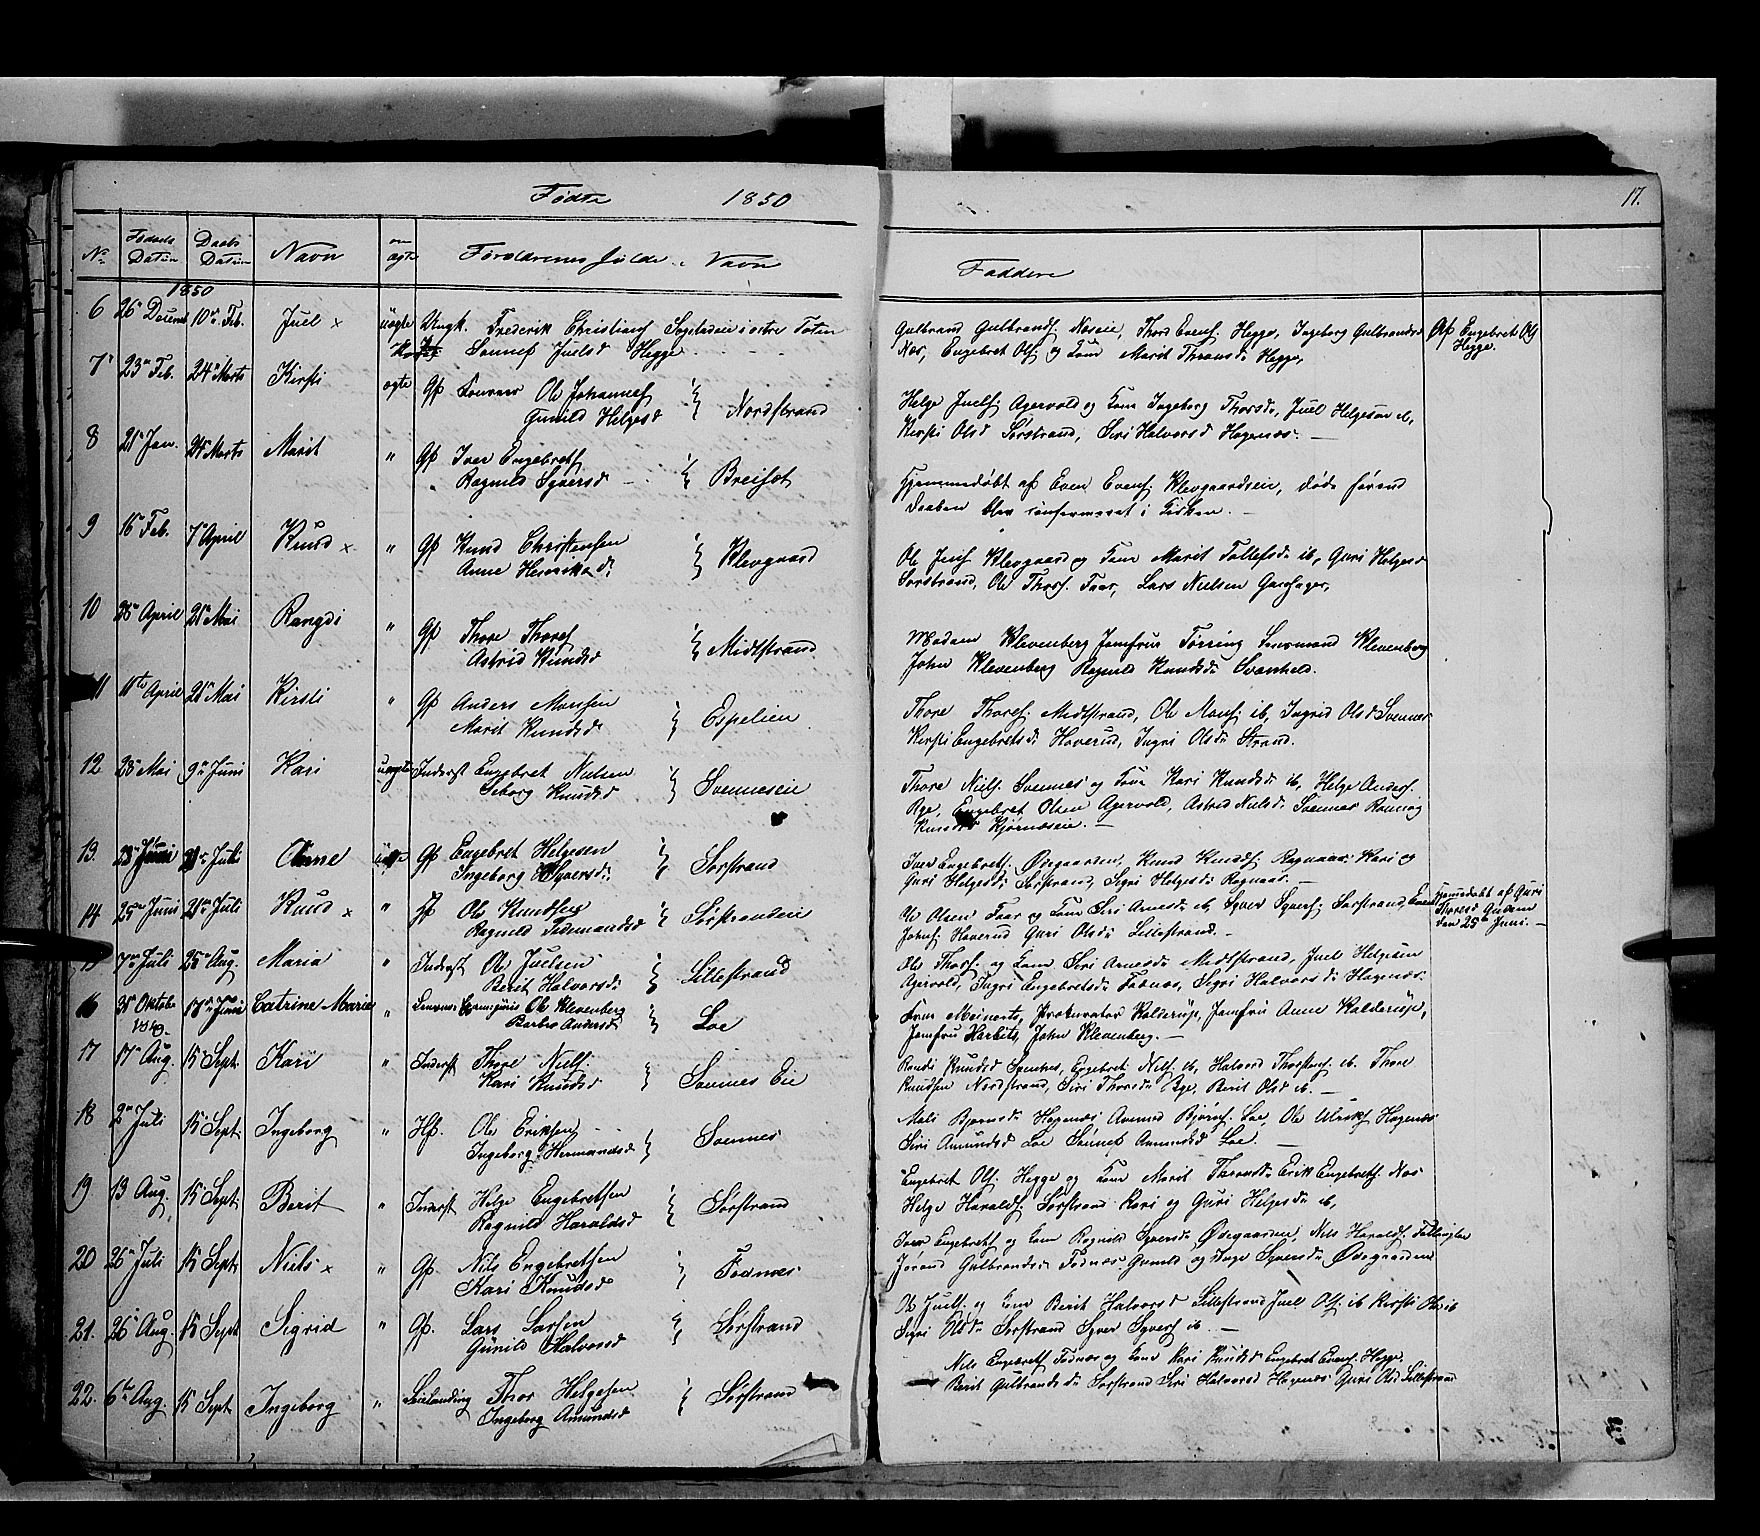 Fødte 1850
17.
No Fødsels Datum Daabs Datum Navn om ægte Forældrenes fulde Navn Faddere
1850
6 26de Decemb 10de Feb. Juel x uægte Ungk. Frederik Christians Sogstadeie i østre Toten
Sønnef Juelsd Hegge
Gulbrand Gulbrands. Næseie, Thord Evens. Hegge, Ingeborg Gulbrandsd
Næs, Engebret Ols og Kone Marit Thronsd. Hegge,
Af Engebret Ols
Hegge.
7 23de Feb. 24de Marts Kirsti ægte Gp Ole Johannes
Gunild Helgesd } Nordstrand
Helge Juels. Agervold og Kone Ingeborg Thorsd., Juel Helgesøn ib,
Kirsti Olsd Sørstrand, Siri Halvorsd Hagenæs.
8 21de Jan. 24de Marts Marit " Gp Iver Engebrets
" Ragnild Syversd } Breiset
Hjemmedøbt af Even Evens. Klevgaardseie, døde førend
Daaben blev confirmeret i Kirken.
9 16de Feb. 7de April Knud x " Gp Knud Christensen
Anne Henriksd. } Klevgaard
Ole Juels Klevgaard og Kone Marit Tollefsd. ib, Guri Helgesd
Sørstrand, Ole Thors. Faar, Lars Nielsen Garthager,
10 28de April 21de Mai Rangdi " Gp Thore Thores
Astrid Knudsd } Midtstrand
Madam Klevenberg Jomfrue Tørring Lensmand Klevenberg
John Klevenberg Ragnild Knudsd. Svanheld.
11 11te April 21de Mai Kirsti " Gp Anders Monsen
Marit Knudsd } Espelien
Thore Thores. Midtstrand, Ole Mons. ib, Ingrid Olsd Svennes
Kirsti Engebretsd. Haverud, Ingri Olsd. Strand.
12 28de Mai 9de Juni Kari uægte Inderst Engebret Nielsen
Seborg Knudsd } Svenneseie
Thore Niels. Svennes og Kone Kari Knudsd. ib, Helge Anders.
Rye, Engebret Olsen Agervold, Astrid Nielsd. Svennes Rannog
Knudsd Bjørnæseie.
13. 23de Juni Juli Anne Gp Engebret Helgesen
Ingeborg Syversd. } Sørstrand
Iver Engebrets. Ødegaarden, Knud Knuds. Ragnaas Kari og
Guri Helgesd. Sørstrand, Sigri Helgesd. Ragnaas.
14 25de Juni 21de Juli Knud x " Ole Knudsen
Ragnild Tidemandsd } Sørstrandeie
Ole Olsen Faar og Kone Siri Arnesd. ib, Syver Syvers. Sørstrand, Even
Johns. Haverud Guri Olsd. Lillestrand.
Hjemedøbt af Guri
Thoresd
den 25de Juni.
15 7de Juli 25de Aug. Maria " Inderst Ole Juelsen
Berit Halvorsd. } Lillestrand
Ole Thors. og Kone Siri Arnesd. Midtstrand, Juel Helgesøn
Agervold, Ingri Engebretsd. Fodnæs, Sigri Halvorsd. Hagenæs.
16 Oktober 1849. 17de Juni Catrine Marie " Ole Klevenberg
Barbro Andersd } Loe
Frue Meinerts, Prokurator Kalderup, Jomfru Anne Kalderup,
Jomfru Harbitz, John Klevenberg.
17 17de Aug. 15 Sept. Kari " Inderst Thore Niels.
Kari Knudsd } Svennes Eie
Randi Knudsd Svennes, Engebret Niels. ib, Halvord Thorstens. ib. Thore
Knudsen Nordstrand, Siri Thorsd. Rye, Berit Olsd ib.
18 2de Juli 15 Sept. Ingeborg " Hp. Ole Eriksen
Ingeborg Hermandsd } Svennes
Mali Bjørnsd. Hagenæs Amund Bjørns. Loe, Ole Ulriks. Hagenæs
Siri Amundsd Loe Sønnef Amundsd Loe.
19 13 Aug. 15 Sept. Berit " Inderst Helge Engebretsen
Ragnild Haraldsd } Sørstrand
Engebret Ols. Hegge og Kone Marit Thronsd. Erik Engebrets. Næs
Helge Haralds. Sørstrand Kari og Guri Helgesd. ib,
20 26de Juli 15 Sept. Niels x " Gp. Nils Engebretsen
Kari Knudsd } Fodnæs
Iver Engebrets og Kone Ragnild Syversd. Ødegaarden, Nils Haralds.
Jørand Gulbrandsd. Fodnæs Gunild og Inge Syversd. Ødegaarden
21. 26de Aug. 15 Sept Sigrid " Gp. Lars Larsen
Gunild Halvorsd } Sørstrand
Ole Juels. og Kone Berit Halvorsd Lillestrand Juel Ols. ib Kirsti Ols ib
Sigri Olsd. Sørstrand Syver Syvers ib.
22. 6te Aug. 15 Sept. Ingeborg " Leilænding Thor Helgesen
Ingeborg Amundsd } Sørstrand
Nils Engebrets Fodnæs og Kone Kari Knudsd Engebret Evens. Hegge,
Berit Gulbrandsd. Sørstrand Siri Halvorsd Hagenæs Guri Olsd Lillestrand